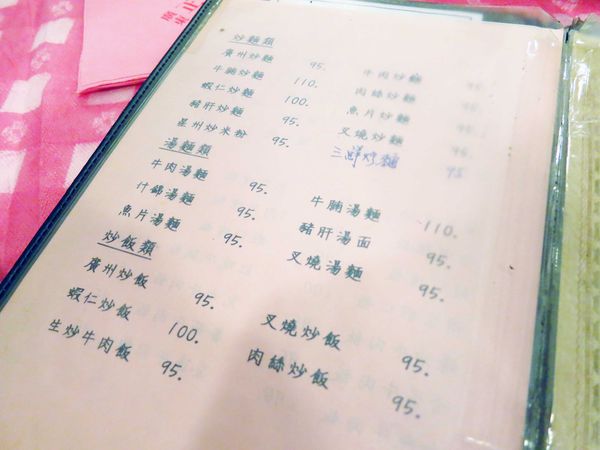 炒麵類
廣州炒麵 95. 牛肉炒麵 95
牛腩炒麵 110. 肉絲炒麵 95
蝦仁炒麵 100. 魚片炒麵 95
豬肝炒麵 95. 叉燒炒麵 95
星州炒米粉 95. 三鮮炒麵 95
湯麵類
牛肉湯麵 95. 牛腩湯麵 110.
什錦湯麵 95. 豬肝湯面 95.
魚片湯麵 95. 叉燒湯麵 95.
炒飯類
廣州炒飯 95. 叉燒炒飯 95.
蝦仁炒飯 100. 肉絲炒飯 95.
生炒牛肉飯 95.